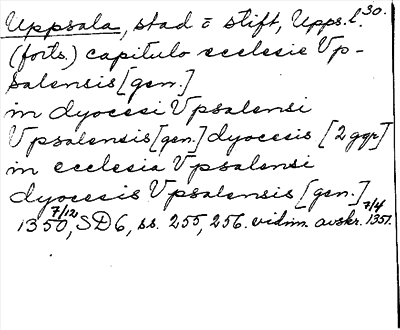 Uppsala, stad o stift, Upps.l. 30.
(forts.) capitulo ecclesie Vp-
salensis [gen.]
in dyocesi Vpsalensi
Vpsalensis [gen.] dyocesis [2 ggr]
in ecclesia Vpsalensi
dyocesis Vpsalensis [gen.]
1350 7/12, SD 6, ss. 255, 256. vidim. avskr. 1351 7/4.